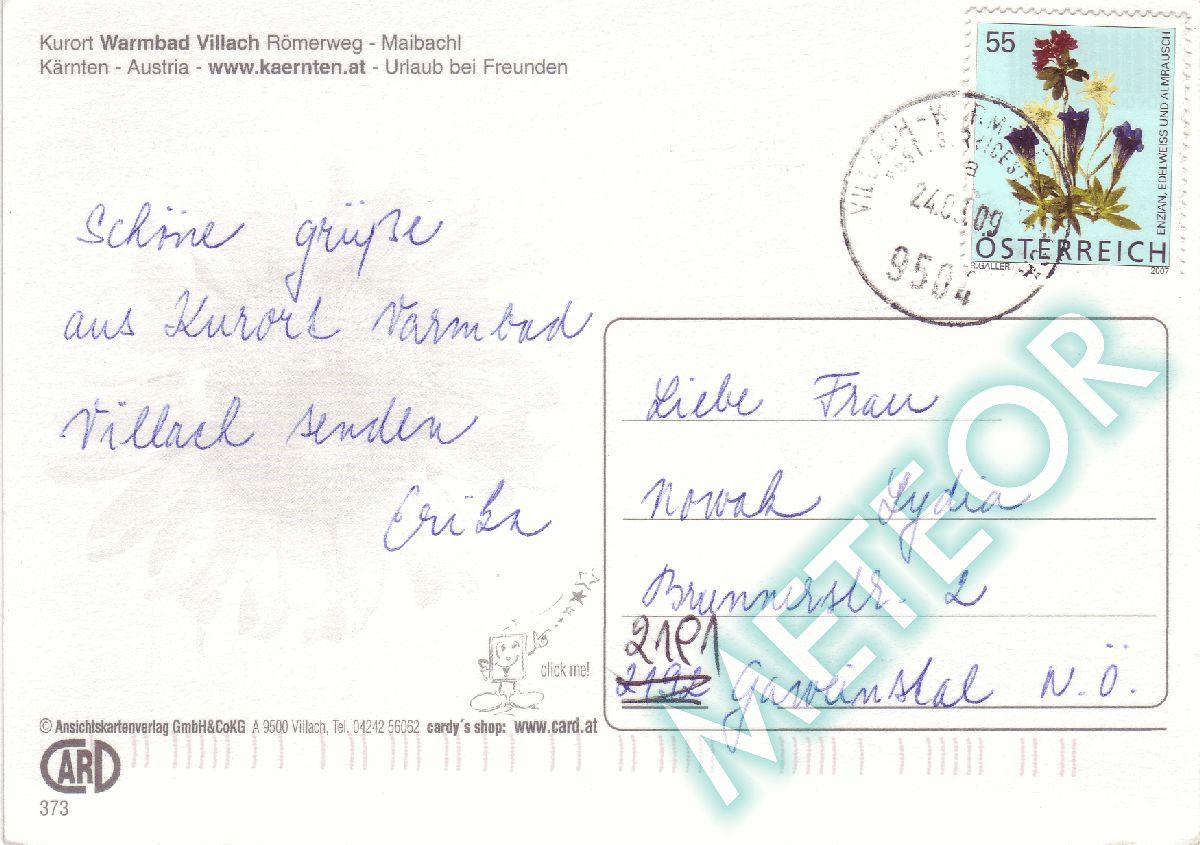 Kurort Warmbad Villach Römerweg - Maibachl
Kärnten - Austria - www.kaernten.at - Urlaub bei Freunden
55
ENZIAN, EDELWEISS UND ALMRAUSCH
ÖSTERREICH
R.GALLER
2007
VILLACH
24.03.09
9504
Schöne grüße
aus Kurort Varmbad
Villach senden
Erika
Liebe Frau
Nowak Lydia
Brunnerstr. 2
2191
2192 Gaweinstal N.Ö.
METEOR
click me!
© Ansichtskartenverlag GmbH&CoKG A 9500 Villach, Tel. 04242 56062 cardy´s shop: www.card.at
CARD
373